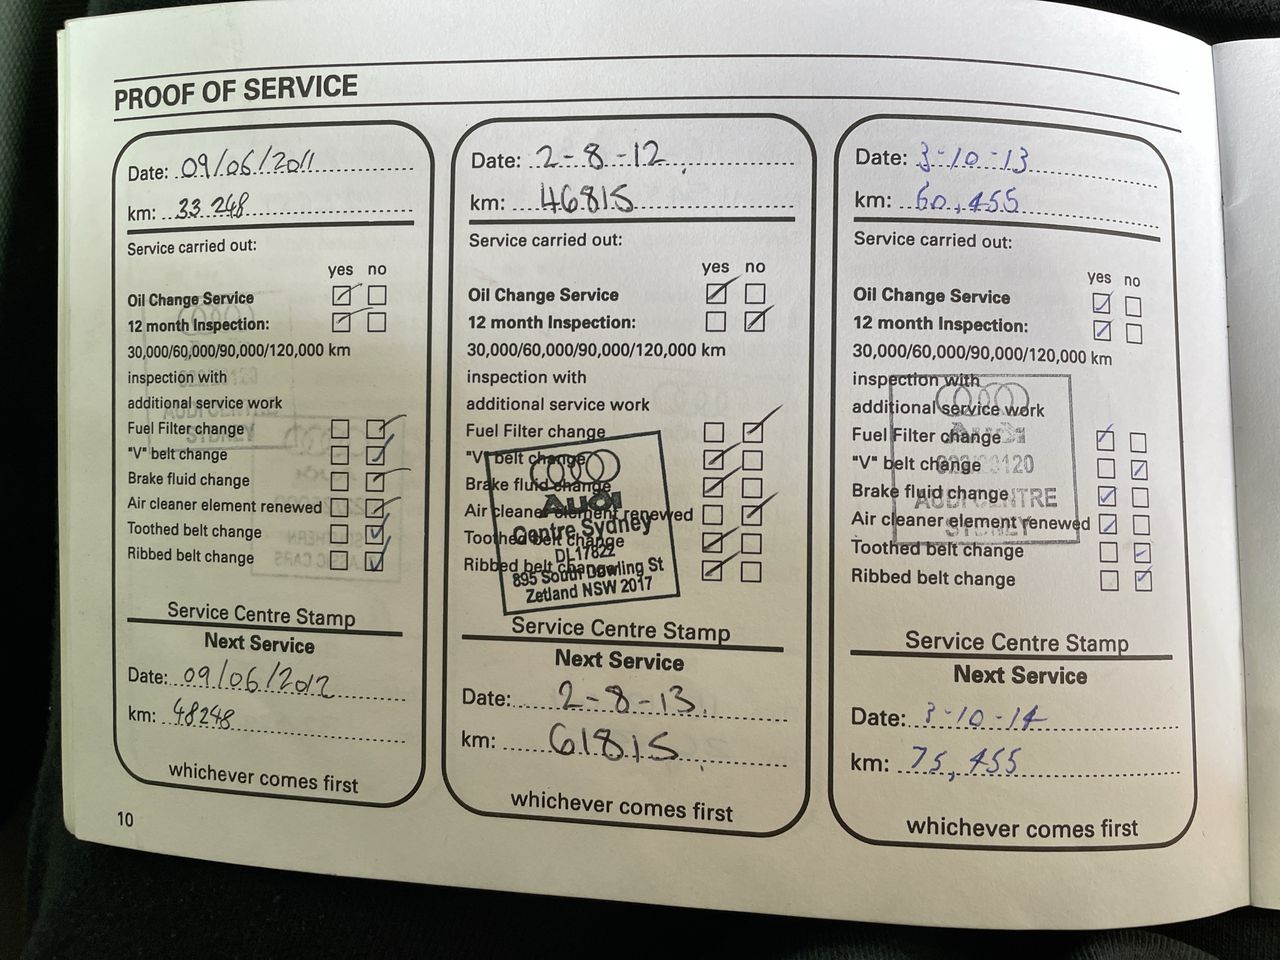 PROOF OF SERVICE
Date: 09/06/2011
km: 33 248
Service carried out:
yes no
Oil Change Service
12 month Inspection:
30,000/60,000/90,000/120,000 km
inspection with
additional service work
Fuel Filter change
"V" belt change
Brake fluid change
Air cleaner element renewed
Toothed belt change
Ribbed belt change
AUDI CENTRE
SYDNEY
Service Centre Stamp
Next Service
Date: 09/06/2012
km: 48248
whichever comes first
Date: 2-8-12
km: 46815
Service carried out:
yes no
Oil Change Service
12 month Inspection:
30,000/60,000/90,000/120,000 km
inspection with
additional service work
Fuel Filter change
"V" belt change
Brake fluid change
Air cleaner element renewed
Toothed belt change
Ribbed belt change
Audi
Centre Sydney
DL17822
895 South Dowling St
Zetland NSW 2017
Service Centre Stamp
Next Service
Date: 2-8-13
km: 61815
whichever comes first
Date: 3-10-13
km: 60,455
Service carried out:
yes no
Oil Change Service
12 month Inspection:
30,000/60,000/90,000/120,000 km
inspection with
additional service work
Fuel Filter change
"V" belt change
Brake fluid change
Air cleaner element renewed
Toothed belt change
Ribbed belt change
Audi
AUDI CENTRE
SYDNEY
Service Centre Stamp
Next Service
Date: 3-10-14
km: 75,455
whichever comes first
10